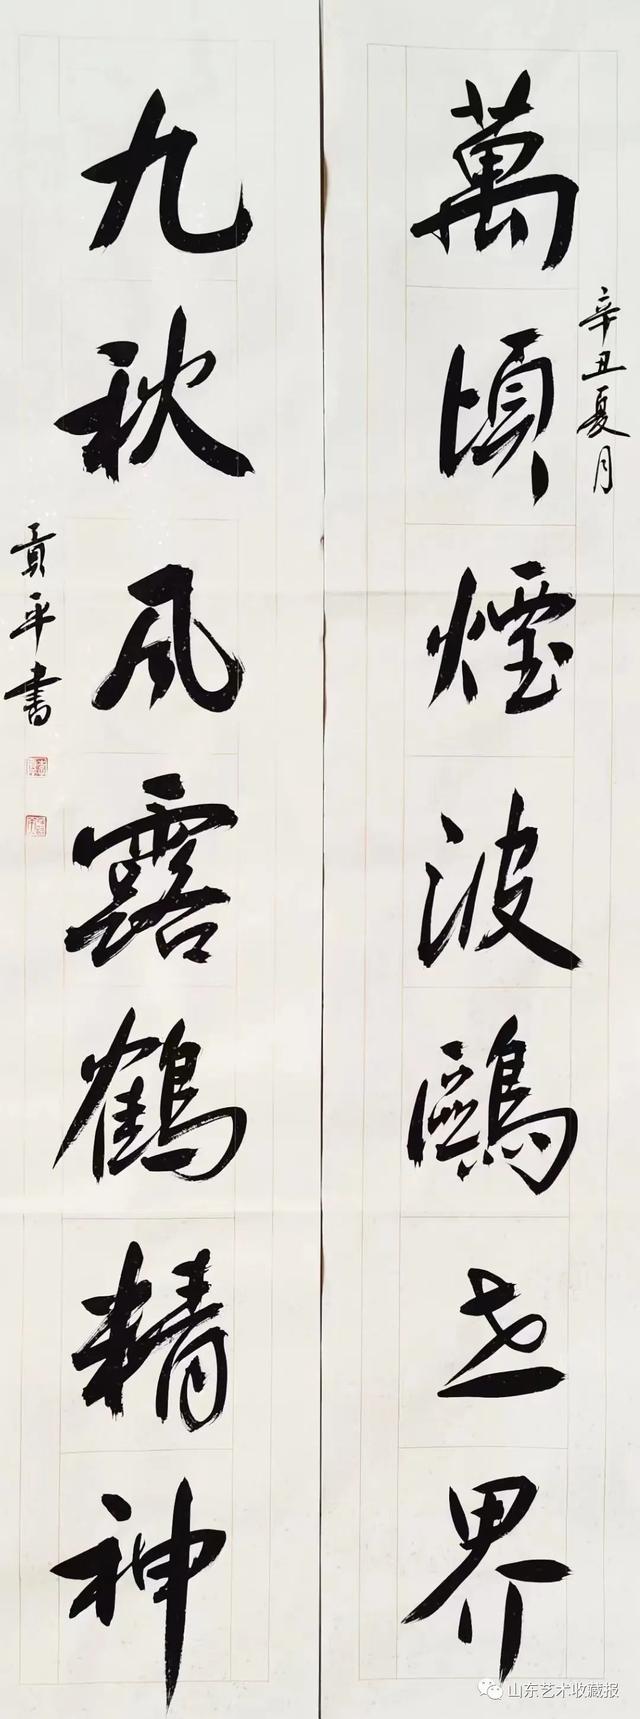 萬頃煙波鷗世界
辛丑夏月
九秋風露鶴精神
貢平書
山东艺术收藏报